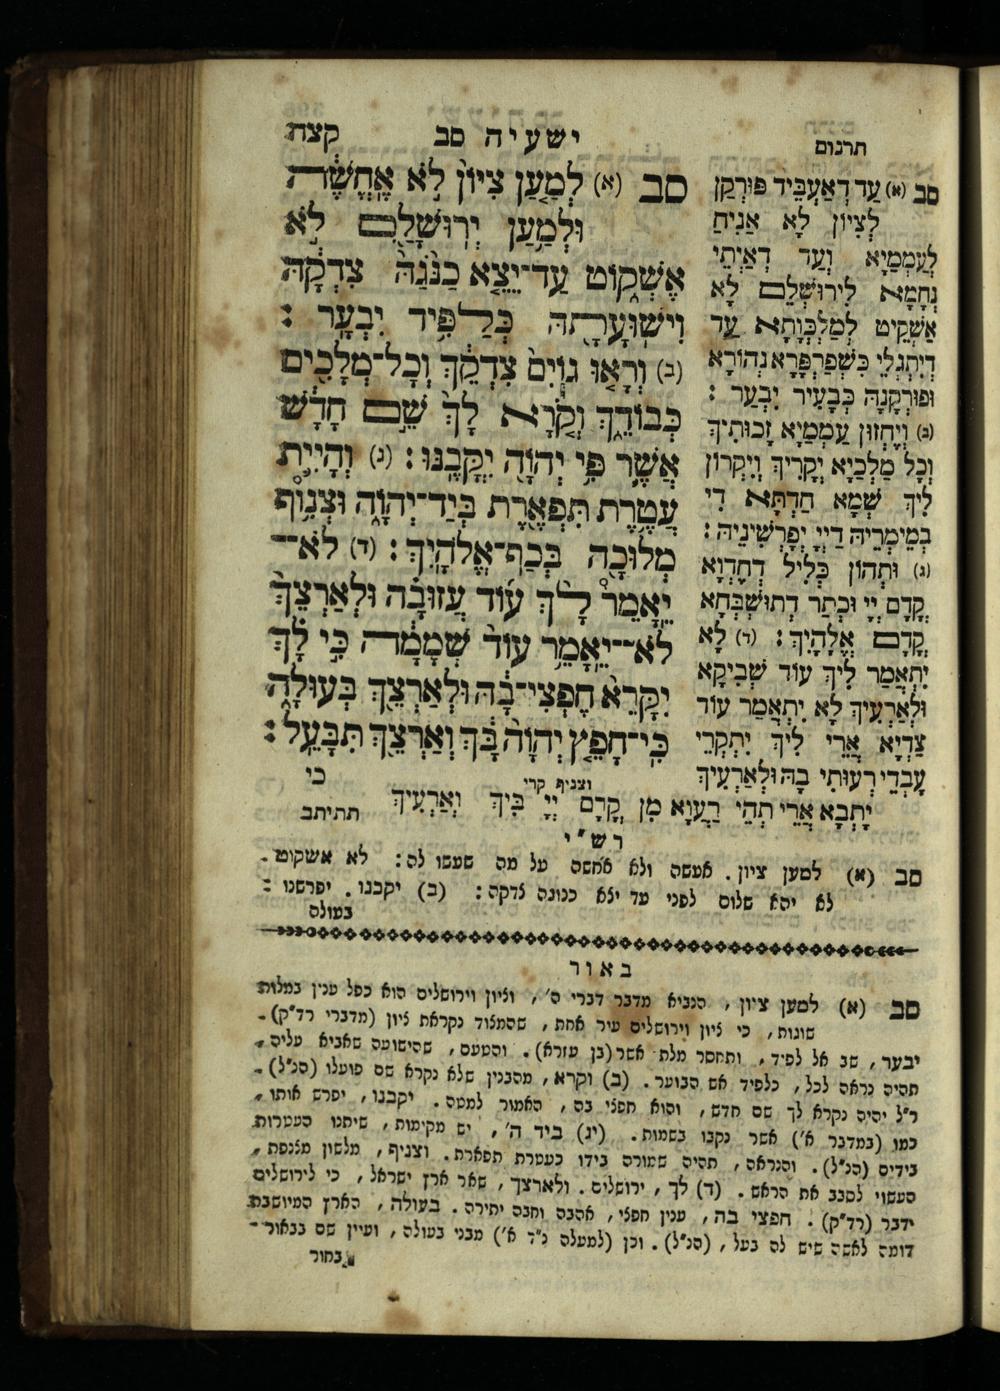 תרגום
ישעיה סב
קצח
סב (א) לְמַעַן צִיּוֹן לֹא אֶחֱשֶׁה
וּלְמַעַן יְרוּשָׁלַ͏ִם לֹא
אֶשְׁקוֹט עַד־יֵצֵא כַנֹּגַהּ צִדְקָהּ
וִישׁוּעָתָהּ כְּלַפִּיד יִבְעָר :
(ב) וְרָאוּ גוֹיִם צִדְקֵךְ וְכָל־מְלָכִים
כְּבוֹדֵךְ וְקֹרָא לָךְ שֵׁם חָדָשׁ
אֲשֶׁר פִּי יְהוָה יִקֳּבֶנּוּ : (ג) וְהָיִית
עֲטֶרֶת תִּפְאֶרֶת בְּיַד־יְהוָה וּצְנוֹף
מְלוּכָה בְּכַף־אֱלֹהָיִךְ : (ד) לֹא־
יֵאָמֵר לָךְ עוֹד עֲזוּבָה וּלְאַרְצֵךְ
לֹא־יֵאָמֵר עוֹד שְׁמָמָה כִּי לָךְ
יִקָּרֵא חֶפְצִי־בָהּ וּלְאַרְצֵךְ בְּעוּלָה
כִּי־חָפֵץ יְהוָה בָּךְ וְאַרְצֵךְ תִּבָּעֵל :
כי
וצניף קרי
סב (א) עַד דְאַעְבֵּיד פּוּרְקַן
לְצִיוֹן לָא אַנִיחַ
לְעַמְמַיָא וְעַד דְאַיְתֵי
נֶחָמָא לִירוּשְׁלֵם לָא
אַשְׁקֵיט לְמַלְכְּוָתָא עַד
דְיִתְגְלֵי כִּשְׁפַרְפָּרָא נְהוֹרָא
וּפוּרְקָנָהּ כְּבָעִיר יִבְעַר :
(ב) וְיֶחְזוּן עַמְמַיָא זָכוּתִיךְ
וְכָל מַלְכַיָא יְקָרִיךְ וְיִקְרוּן
לִיךְ שְׁמָא חַדְתָּא דִי
בְמֵימְרֵיהּ דַיְיָ יְפָרְשִׁינֵיהּ :
(ג) וּתְהוֹן כְּלִיל דְחֶדְוָא
קֳדָם יְיָ וּכְתַר דְתוּשְׁבְּחָא
קֳדָם אֱלָהָיִךְ : (ד) לָא
יִתְאֲמַר לִיךְ עוֹד שְׁבִיקָא
וּלְאַרְעִיךְ לָא יִתְאֲמַר עוֹד
צַדְיָא אֲרֵי לִיךְ יִתְקְרֵי
עָבְדֵי רְעוּתִי בָהּ וּלְאַרְעִיךְ
יָתְבָא אֲרֵי תְהֵי רַעֲוָא מִן קֳדָם יְיָ בִּיךְ וְאַרְעִיךְ
תתיתב
רש״י
סב (א) למען ציון . אעשה ולא אחשה על מה שעשו לה : לא אשקוט .
לא יהא שלום לפני עד יצא כנוגה צדקה : (ב) יקבנו . יפרשנו :
בעולה
באור
סב (א) למען ציון , הנביא מדבר דברי ה׳ , וציון וירושלים הוא כפל ענין במלות
שונות , כי ציון וירושלים עיר אחת , שהמצוד נקראת ציון (מדברי רד״ק) .
יבער , שב אל לפיד , ותחסר מלת אשר (בן עזרא) . והטעם , שהישועה שאביא עליה ,
תהיה נראה לכל , כלפיד אש הבוער . (ב) וקרא , מהבנין שלא נקרא שם פועלו (הנ״ל) .
ר״ל יהיה נקרא לך שם חדש , והוא חפצי בה , האמור למטה . יקבנו , יפרש אותו ,
כמו (במדבר א׳) אשר נקבו בשמות . (יג) ביד ה׳ , יש מקימות , שיתנו העטרות
בידים (הנ״ל) . והנראה , תהיה שמורה בידו כעטרת תפארת . וצניף , מלשון מצנפת ,
העשוי לסבב את הראש . (ד) לך , ירושלים . ולארצך , שאר ארץ ישראל , כי לירושלים
ידבר (רד״ק) . חפצי בה , ענין חפצי , אהבה וחבה יתירה . בעולה , הארץ המיושבת
דומה לאשה שיש לה בעל , (הנ״ל) . וכן (למעלה נ״ד א׳) מבני בעולה , ועיין שם בבאור
בחור